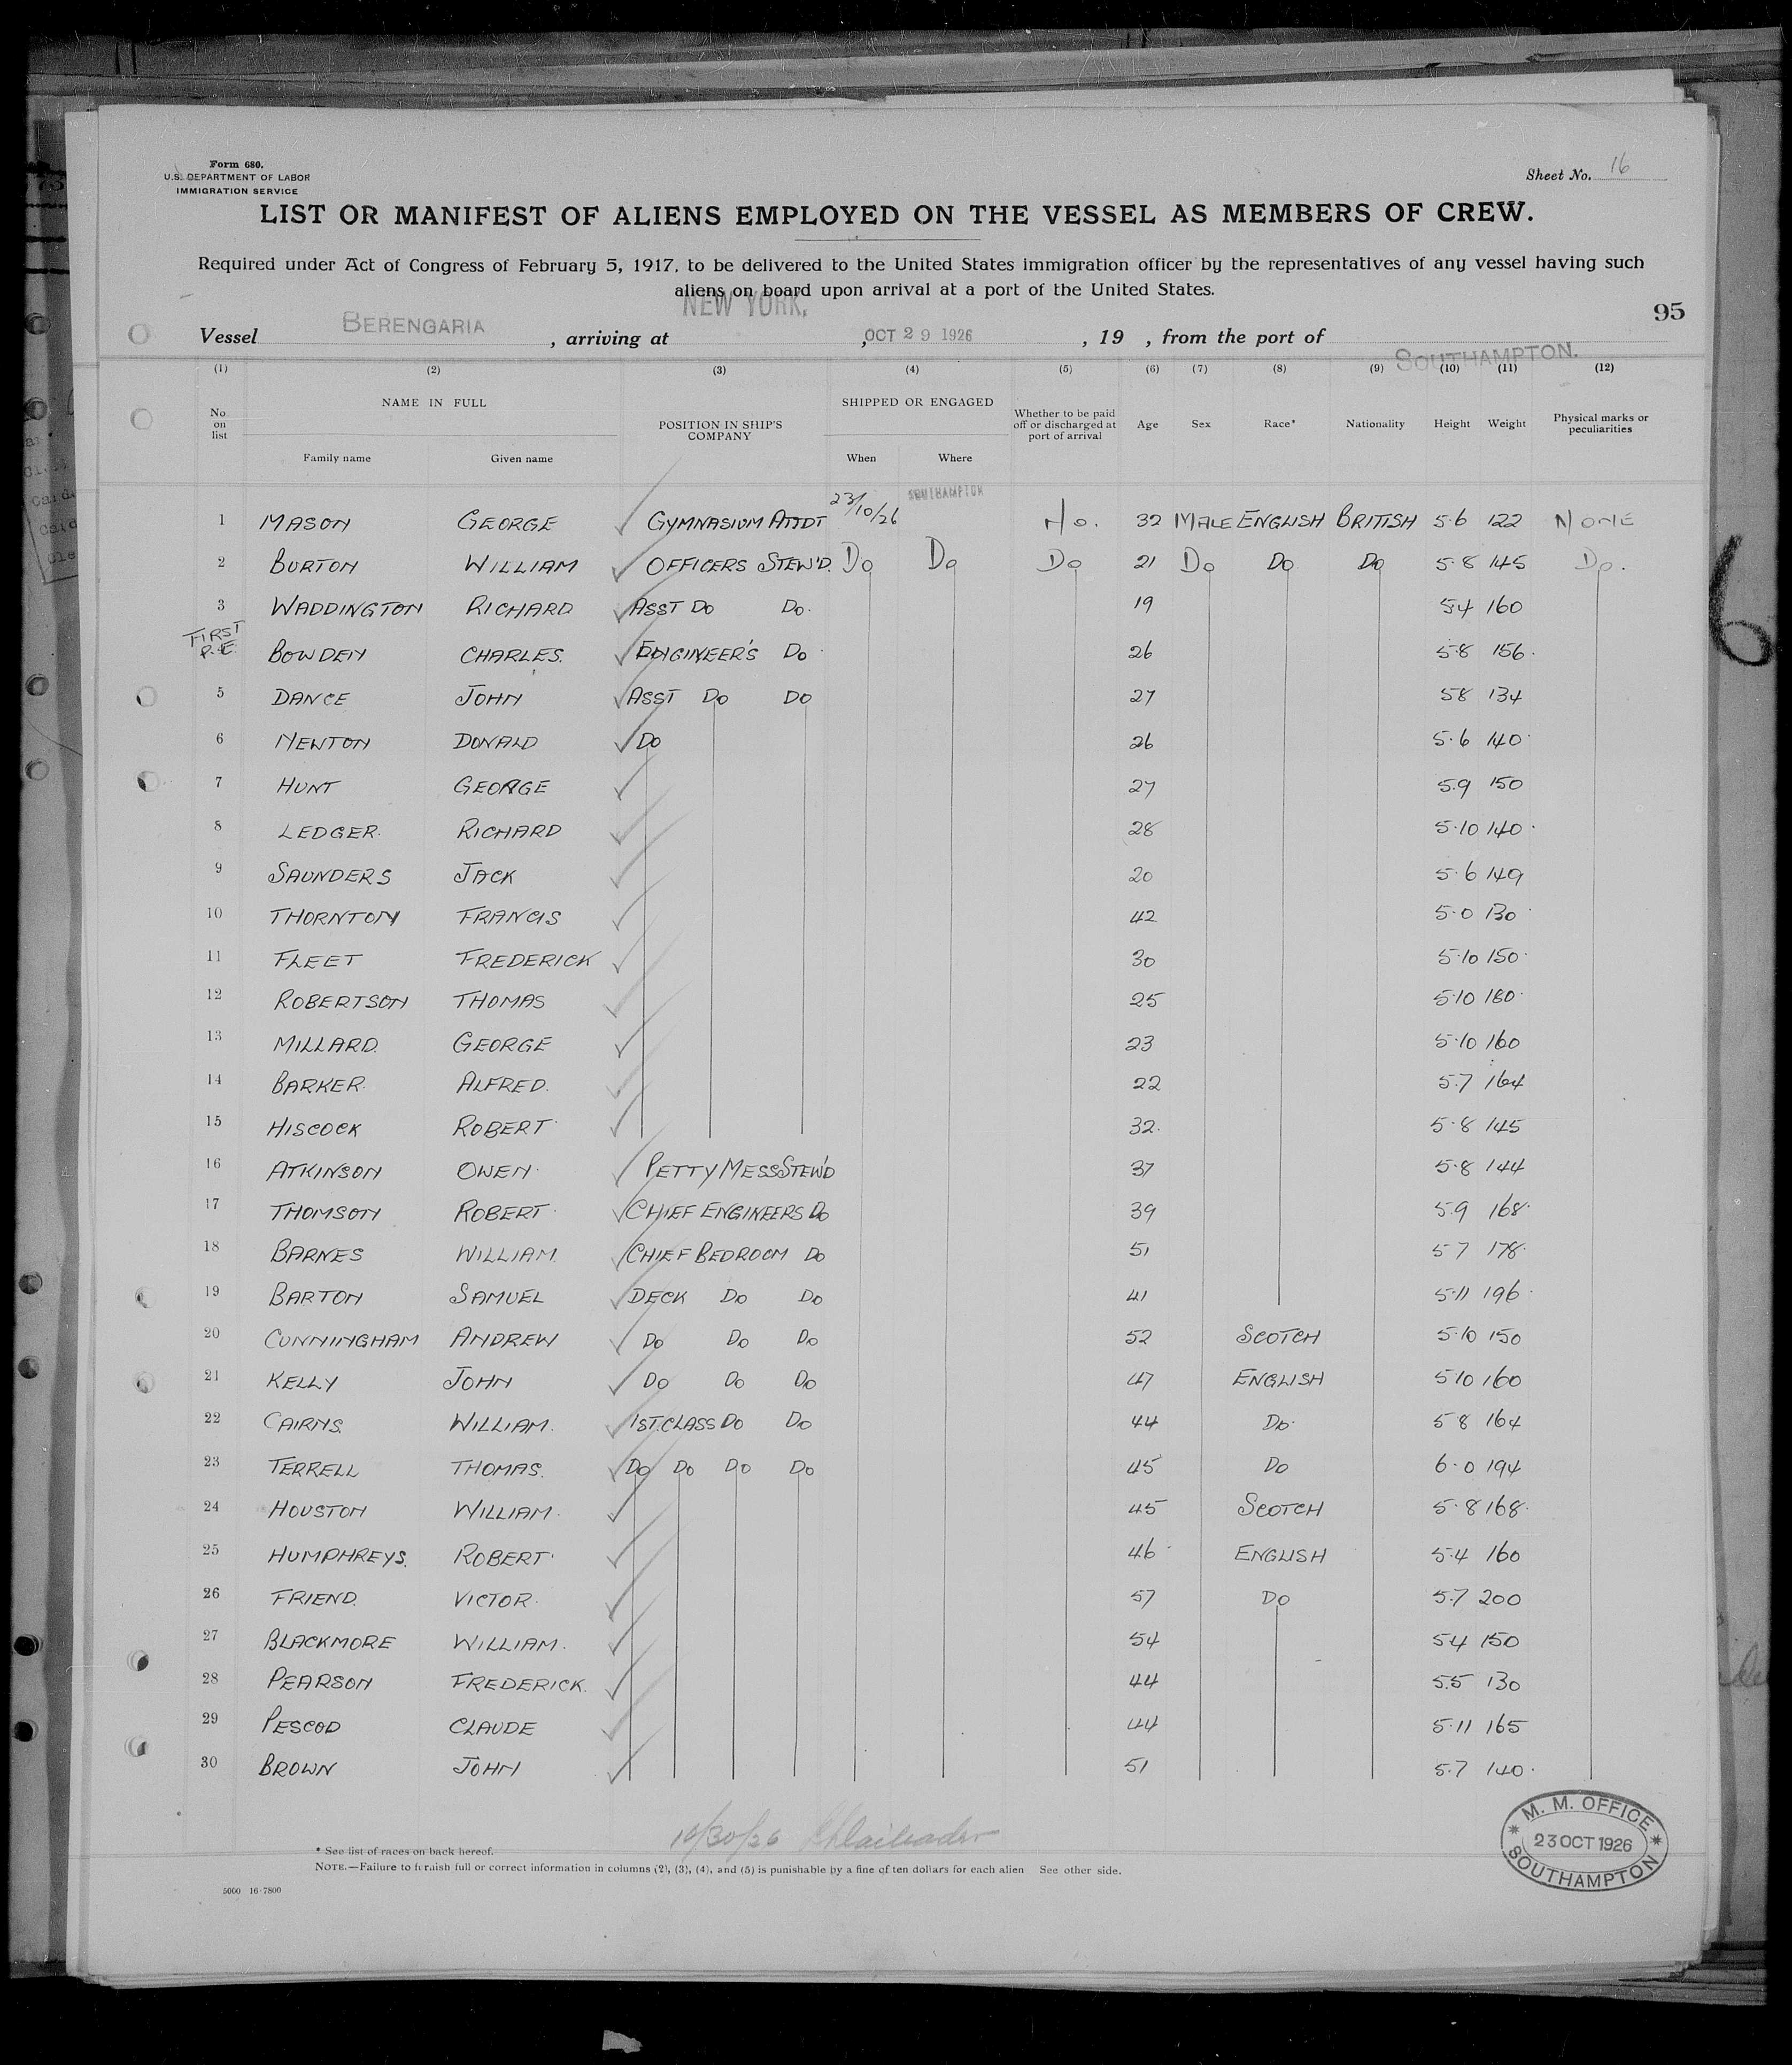 Form 680.
U.S. DEPARTMENT OF LABOR
IMMIGRATION SERVICE
Sheet No. 16
LIST OR MANIFEST OF ALIENS EMPLOYED ON THE VESSEL AS MEMBERS OF CREW.
Required under Act of Congress of February 5, 1917, to be delivered to the United States immigration officer by the representatives of any vessel having such
aliens on board upon arrival at a port of the United States.
95
Vessel BERENGARIA, arriving at NEW YORK, OCT 29 1926, 19 , from the port of SOUTHAMPTON.
(1) (2) (3) (4) (5) (6) (7) (8) (9) (10) (11) (12)
No on list NAME IN FULL Family name Given name POSITION IN SHIP'S COMPANY SHIPPED OR ENGAGED When Where Whether to be paid off or discharged at port of arrival Age Sex Race* Nationality Height Weight Physical marks or peculiarities
1 MASON GEORGE GYMNASIUM ATTDT 23/10/26 SOUTHAMPTON No. 32 MALE ENGLISH BRITISH 5·6 122 NONE
2 BURTON WILLIAM OFFICERS STEW'D. Do Do Do 21 Do Do Do 5·8 145 Do.
3 WADDINGTON RICHARD ASST Do Do. 19 5·4 160
FIRST P.E. BOWDEN CHARLES. ENGINEER'S Do 26 5·8 156.
5 DANCE JOHN ASST Do Do 27 5·8 134
6 NEWTON DONALD Do 26 5·6 140
7 HUNT GEORGE 27 5·9 150
8 LEDGER. RICHARD 28 5·10 140
9 SAUNDERS JACK 20 5·6 149
10 THORNTON FRANCIS 42 5·0 130
11 FLEET FREDERICK 30 5·10 150
12 ROBERTSON THOMAS 25 5·10 180
13 MILLARD. GEORGE 23 5·10 160
14 BARKER. ALFRED. 22 5·7 164
15 HISCOCK ROBERT 32. 5·8 145
16 ATKINSON OWEN. PETTY MESS STEW'D 37 5·8 144
17 THOMSON ROBERT CHIEF ENGINEERS Do 39 5·9 168
18 BARNES WILLIAM. CHIEF BEDROOM Do 51 5 7 178
19 BARTON SAMUEL DECK Do Do 41 5·11 196
20 CUNNINGHAM ANDREW Do Do Do 52 SCOTCH 5·10 150
21 KELLY JOHN Do Do Do 47 ENGLISH 5 10 160
22 CAIRNS. WILLIAM. 1ST. CLASS Do Do 44 Do 5 8 164
23 TERRELL THOMAS. Do Do Do Do 45 Do 6·0 194
24 HOUSTON WILLIAM. 45 SCOTCH 5·8 168
25 HUMPHREYS. ROBERT 46 ENGLISH 5·4 160
26 FRIEND. VICTOR. 57 Do 5·7 200
27 BLACKMORE WILLIAM. 54 5 4 150
28 PEARSON FREDERICK. 44 5·5 130
29 PESCOD CLAUDE 44 5·11 165
30 BROWN JOHN 51 5·7 140
10/30/26
* See list of races on back hereof.
NOTE.—Failure to furnish full or correct information in columns (2), (3), (4), and (5) is punishable by a fine of ten dollars for each alien See other side.
5000 16-7800
M. M. OFFICE
23 OCT 1926
SOUTHAMPTON
6